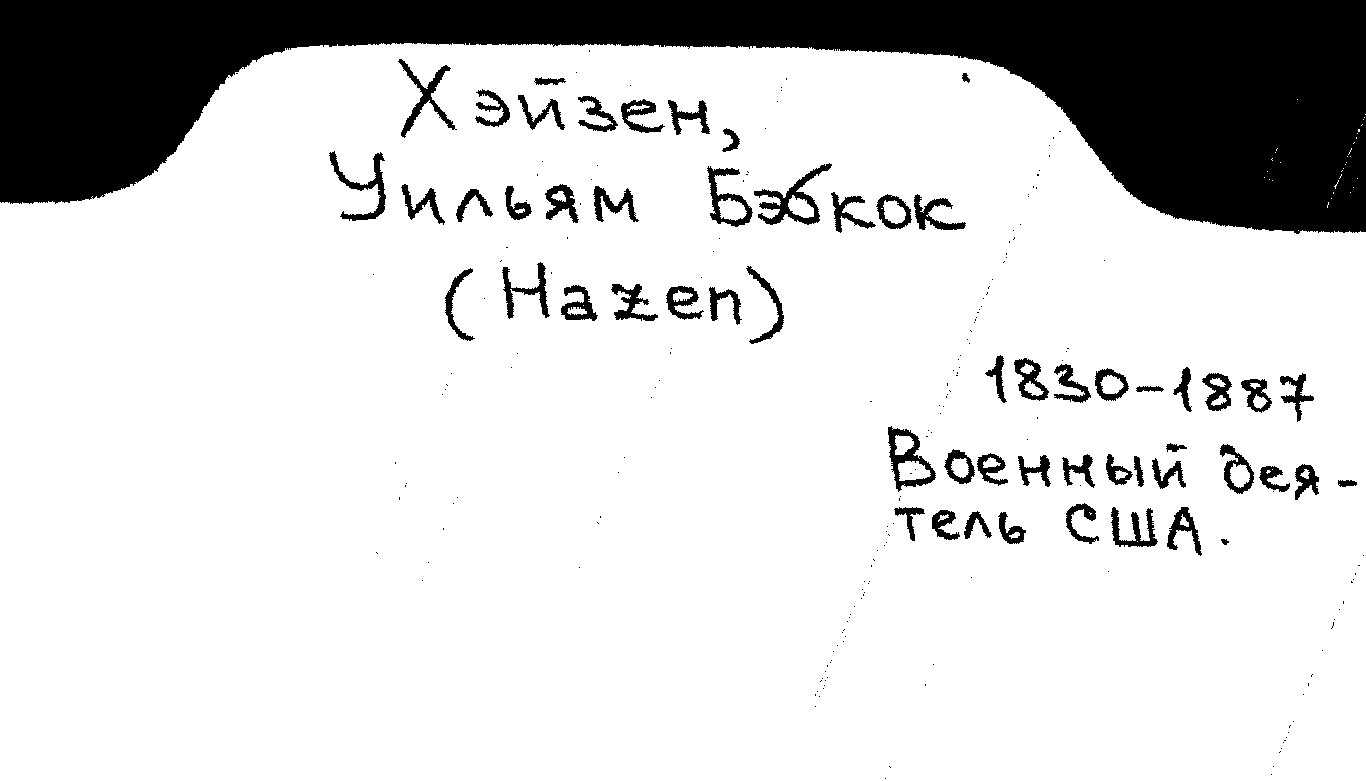 Хэйзен,
Уильям Бэбкок
(Hazen)
1830-1887
Военный дея-
тель США.